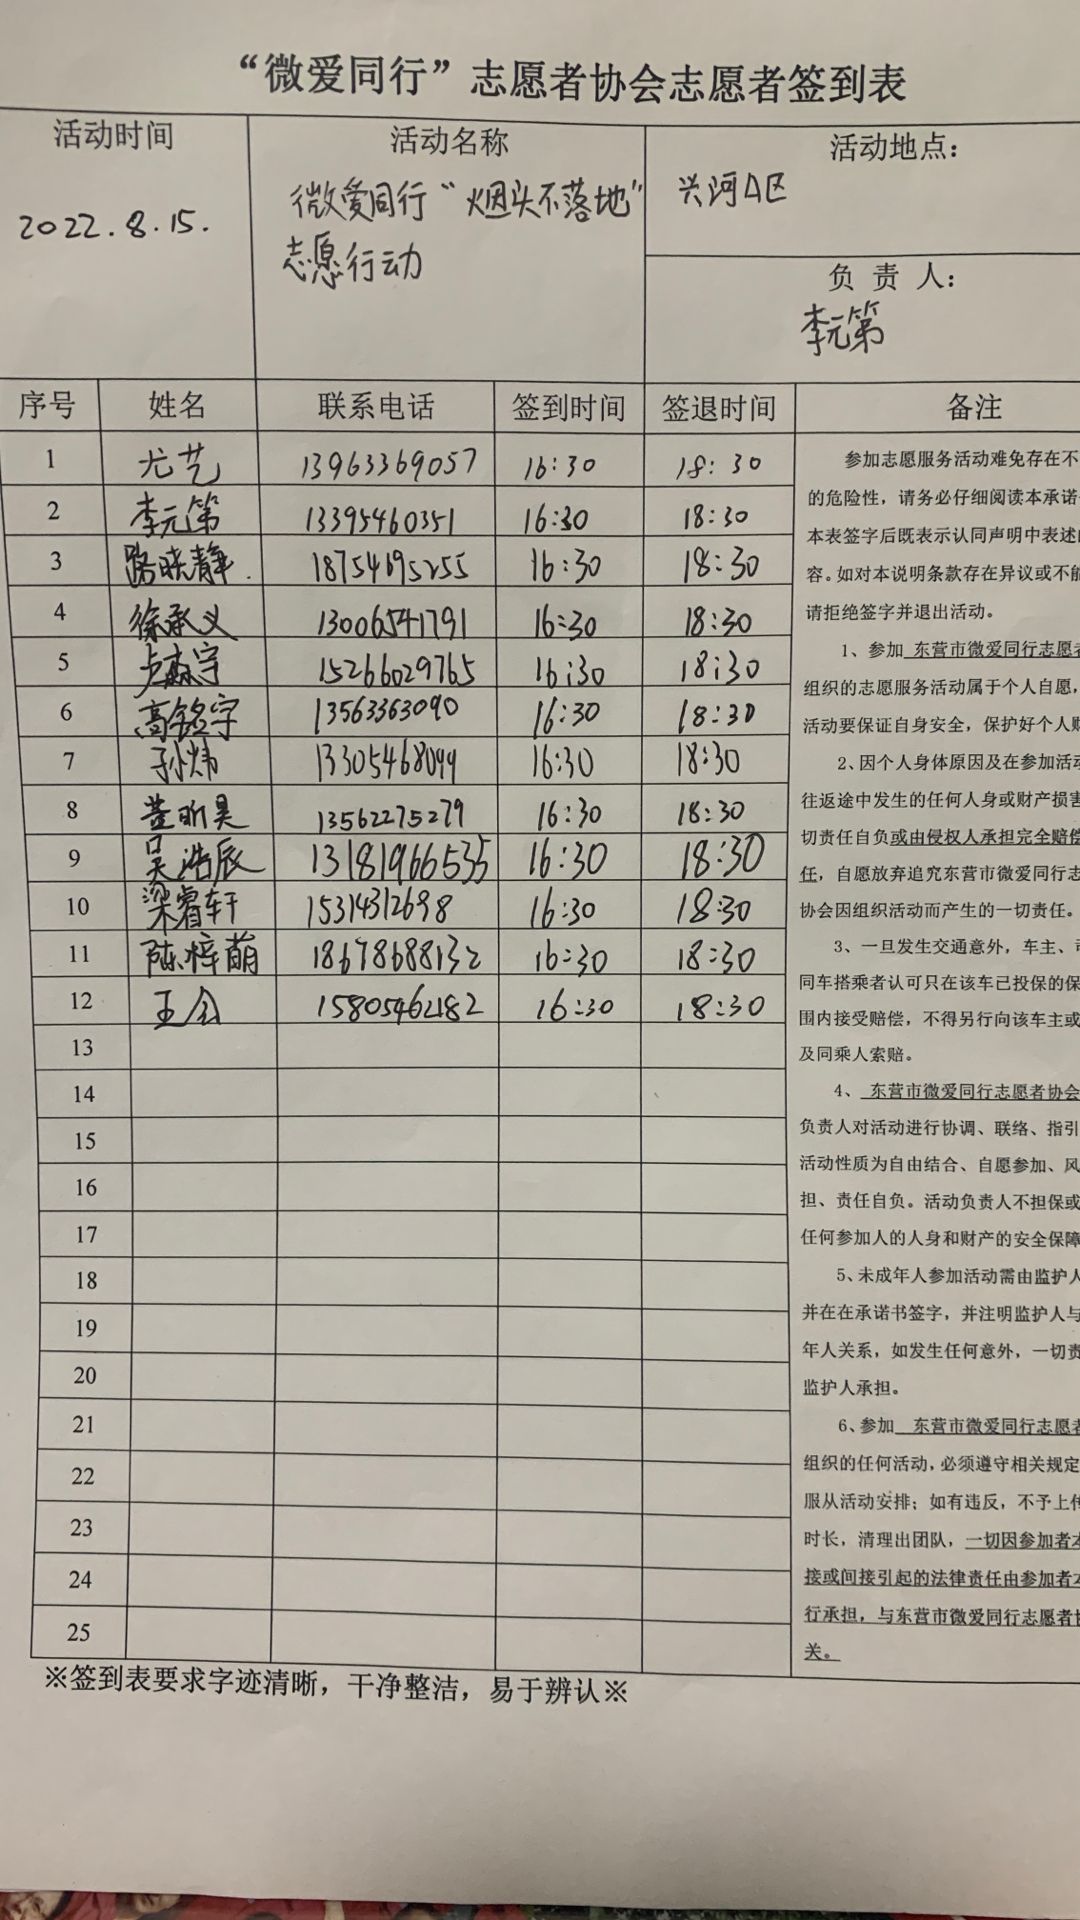 “微爱同行”志愿者协会志愿者签到表
活动时间
2022.8.15.
活动名称
微爱同行“烟头不落地”
志愿行动
活动地点：
兴河A区
负 责 人：
李元第
序号 姓名 联系电话 签到时间 签退时间 备注
1 尤艺 13963369057 16:30 18:30
2 李元第 13395460351 16:30 18:30
3 路晓静. 18754695255 16:30 18:30
4 徐承义 13006541791 16:30 18:30
5 卢森宇 15266029765 16:30 18:30
6 高铭宇 13563363090 16:30 18:30
7 孙炜 13305468099 16:30 18:30
8 董昕昊 13562275279 16:30 18:30
9 吴浩辰 13181966535 16:30 18:30
10 梁睿轩 15314312698 16:30 18:30
11 陈梓萌 18678688132 16:30 18:30
12 王会 15805462182 16:30 18:30
13
14
15
16
17
18
19
20
21
22
23
24
25
参加志愿服务活动难免存在不
的危险性，请务必仔细阅读本承诺
本表签字后既表示认同声明中表述
容。如对本说明条款存在异议或不能
请拒绝签字并退出活动。
1、参加 东营市微爱同行志愿者
组织的志愿服务活动属于个人自愿，
活动要保证自身安全，保护好个人财
2、因个人身体原因及在参加活动
往返途中发生的任何人身或财产损害
切责任自负或由侵权人承担完全赔偿
任，自愿放弃追究东营市微爱同行志
协会因组织活动而产生的一切责任。
3、一旦发生交通意外，车主、司
同车搭乘者认可只在该车已投保的保
围内接受赔偿，不得另行向该车主或
及同乘人索赔。
4、 东营市微爱同行志愿者协会
负责人对活动进行协调、联络、指引
活动性质为自由结合、自愿参加、风
担、责任自负。活动负责人不担保或
任何参加人的人身和财产的安全保障
5、未成年人参加活动需由监护人
并在在承诺书签字，并注明监护人与
年人关系，如发生任何意外，一切责
监护人承担。
6、参加 东营市微爱同行志愿者
组织的任何活动，必须遵守相关规定
服从活动安排；如有违反，不予上传
时长，清理出团队，一切因参加者本
接或间接引起的法律责任由参加者本
行承担，与东营市微爱同行志愿者协
关。
※签到表要求字迹清晰，干净整洁，易于辨认※